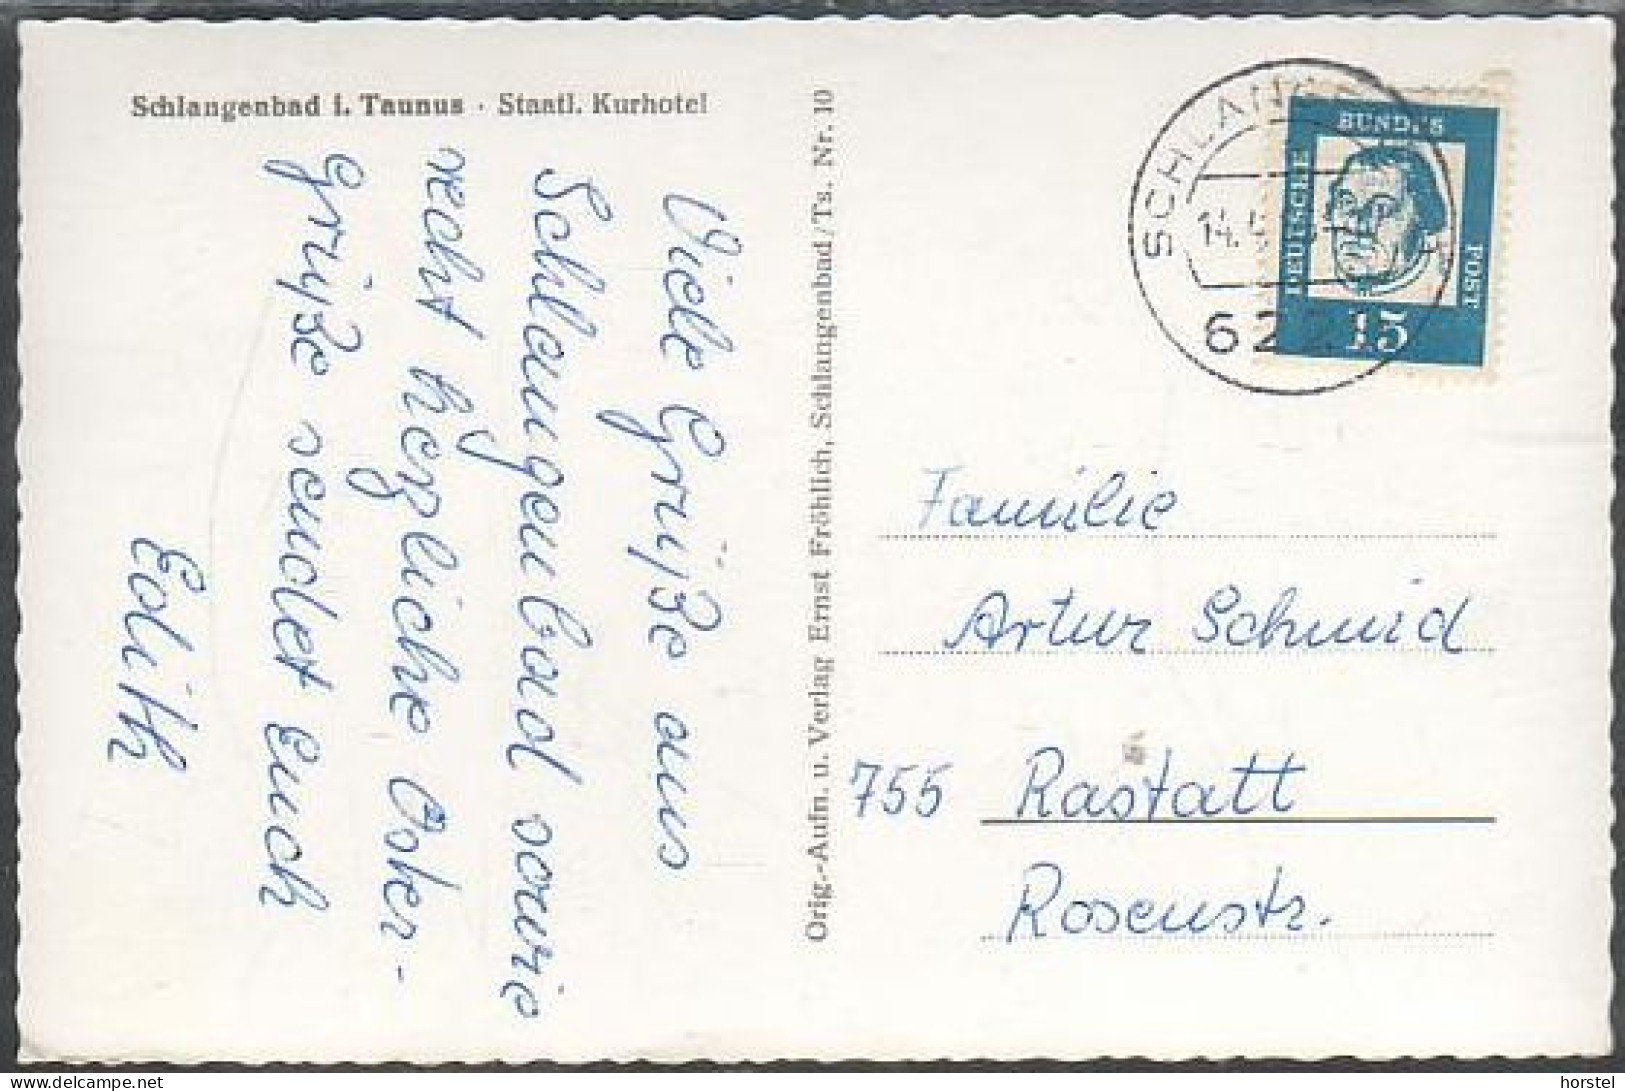 Schlangenbad i. Taunus · Staatl. Kurhotel
Viele Grüße aus
Schlangenbad sowie
recht herzliche Oster-
grüße sendet Euch
Edith
Orig.-Aufn. u. Verlag Ernst Fröhlich, Schlangenbad/Ts. Nr. 10
DEUTSCHE
BUNDES
POST
15
SCHLANG
14.
622
Familie
Artur Schmid
755 Rastatt
Rosenstr.
horstel
www.delcampe.net